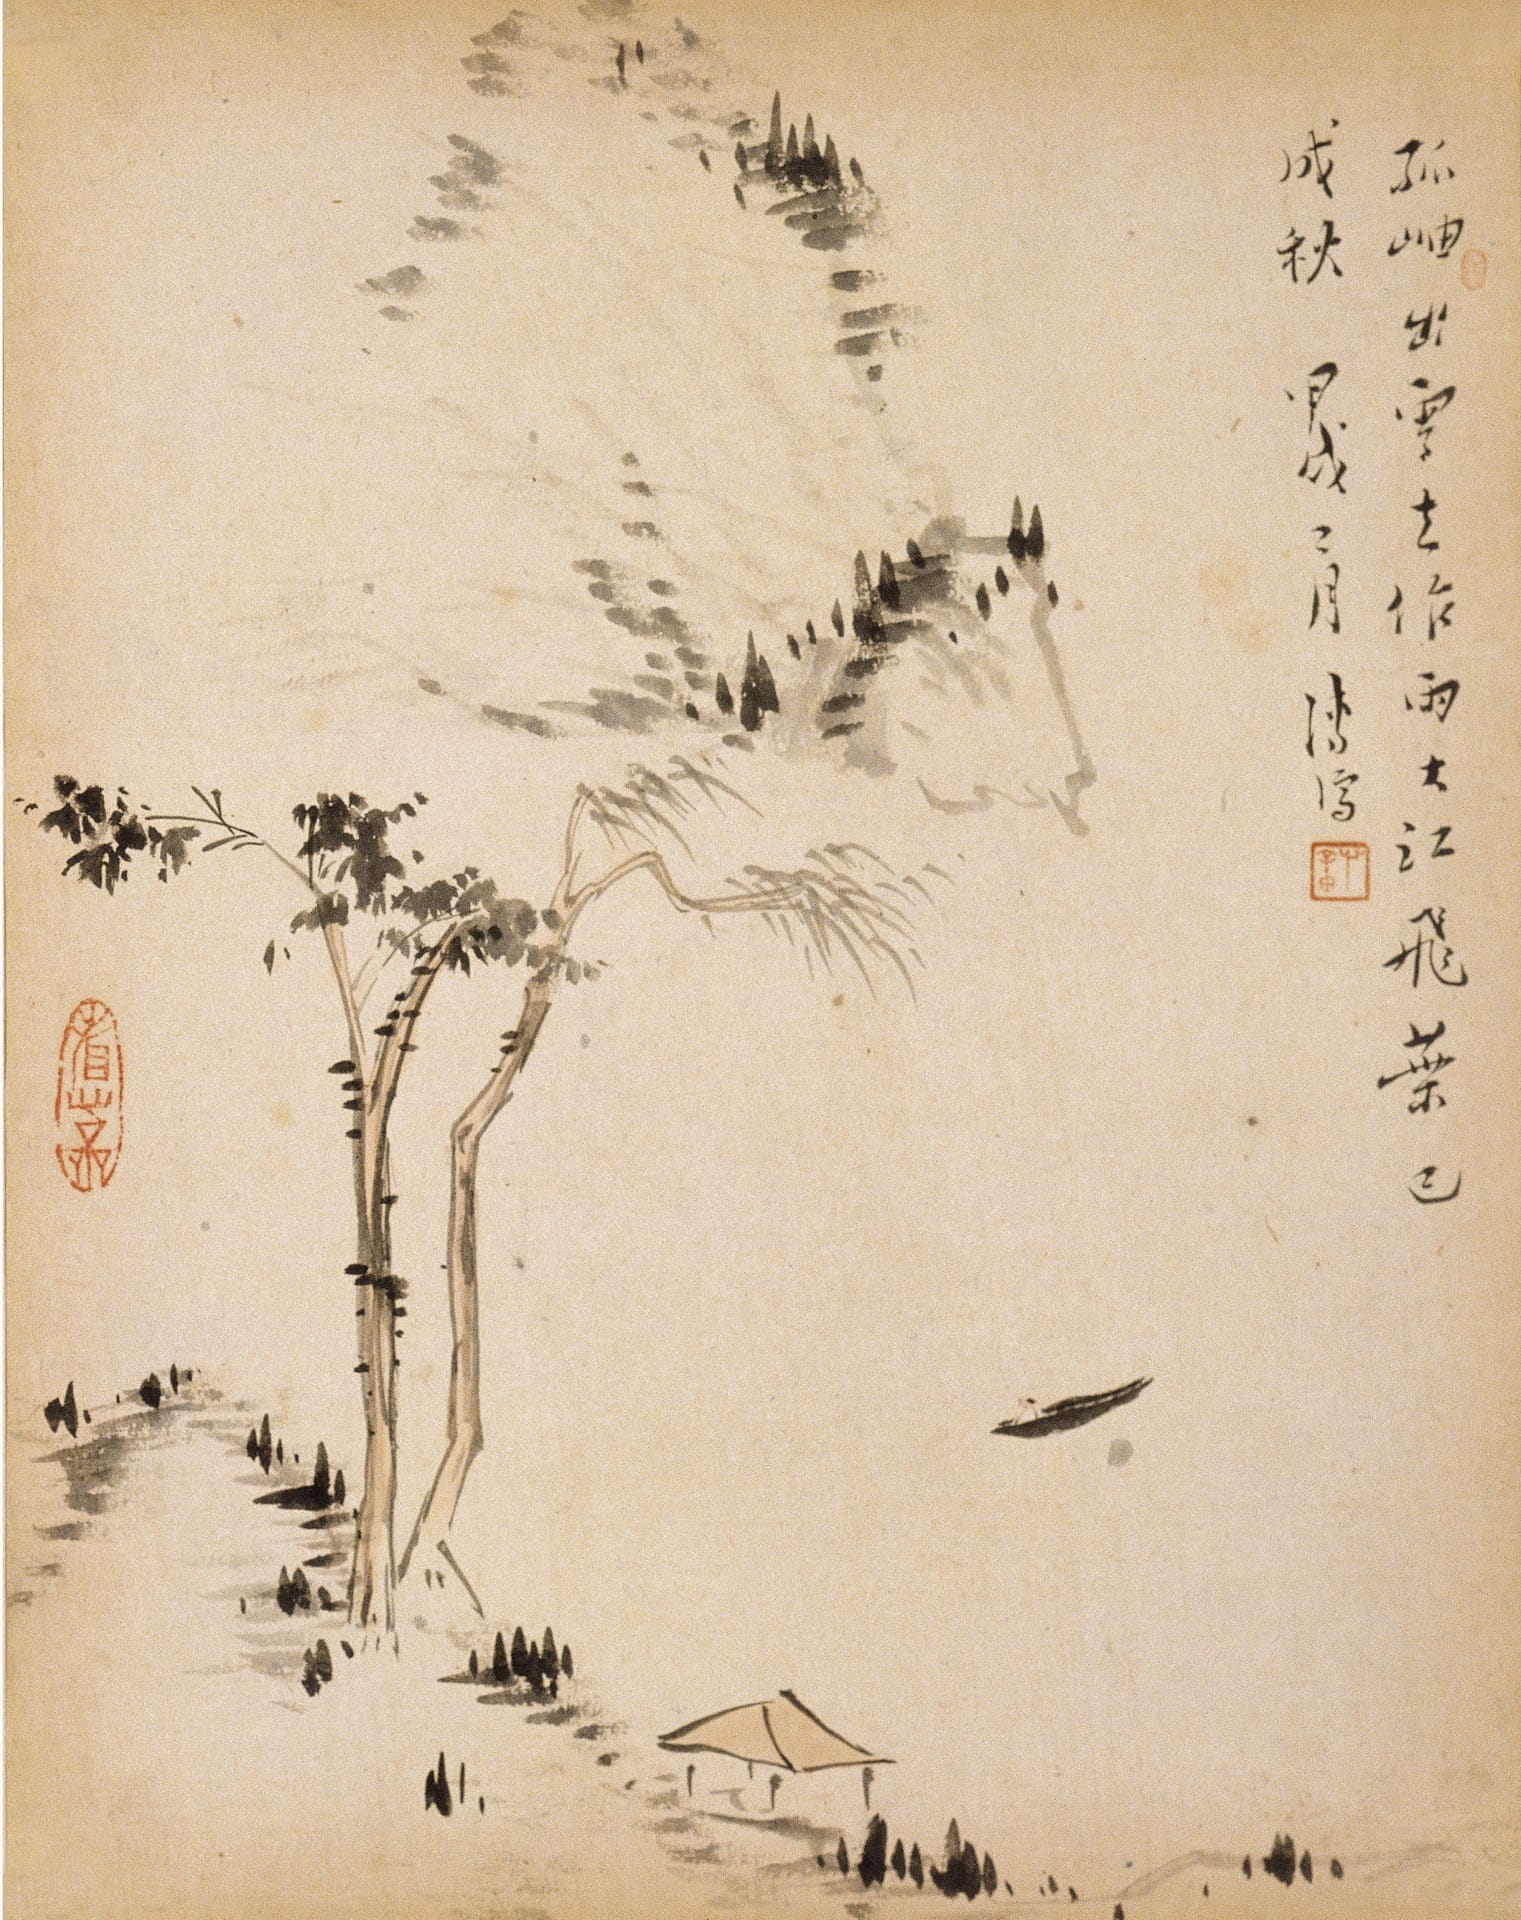 孤岫出雲去作雨大江飛葉已
成秋 甲戌二月 濤寫